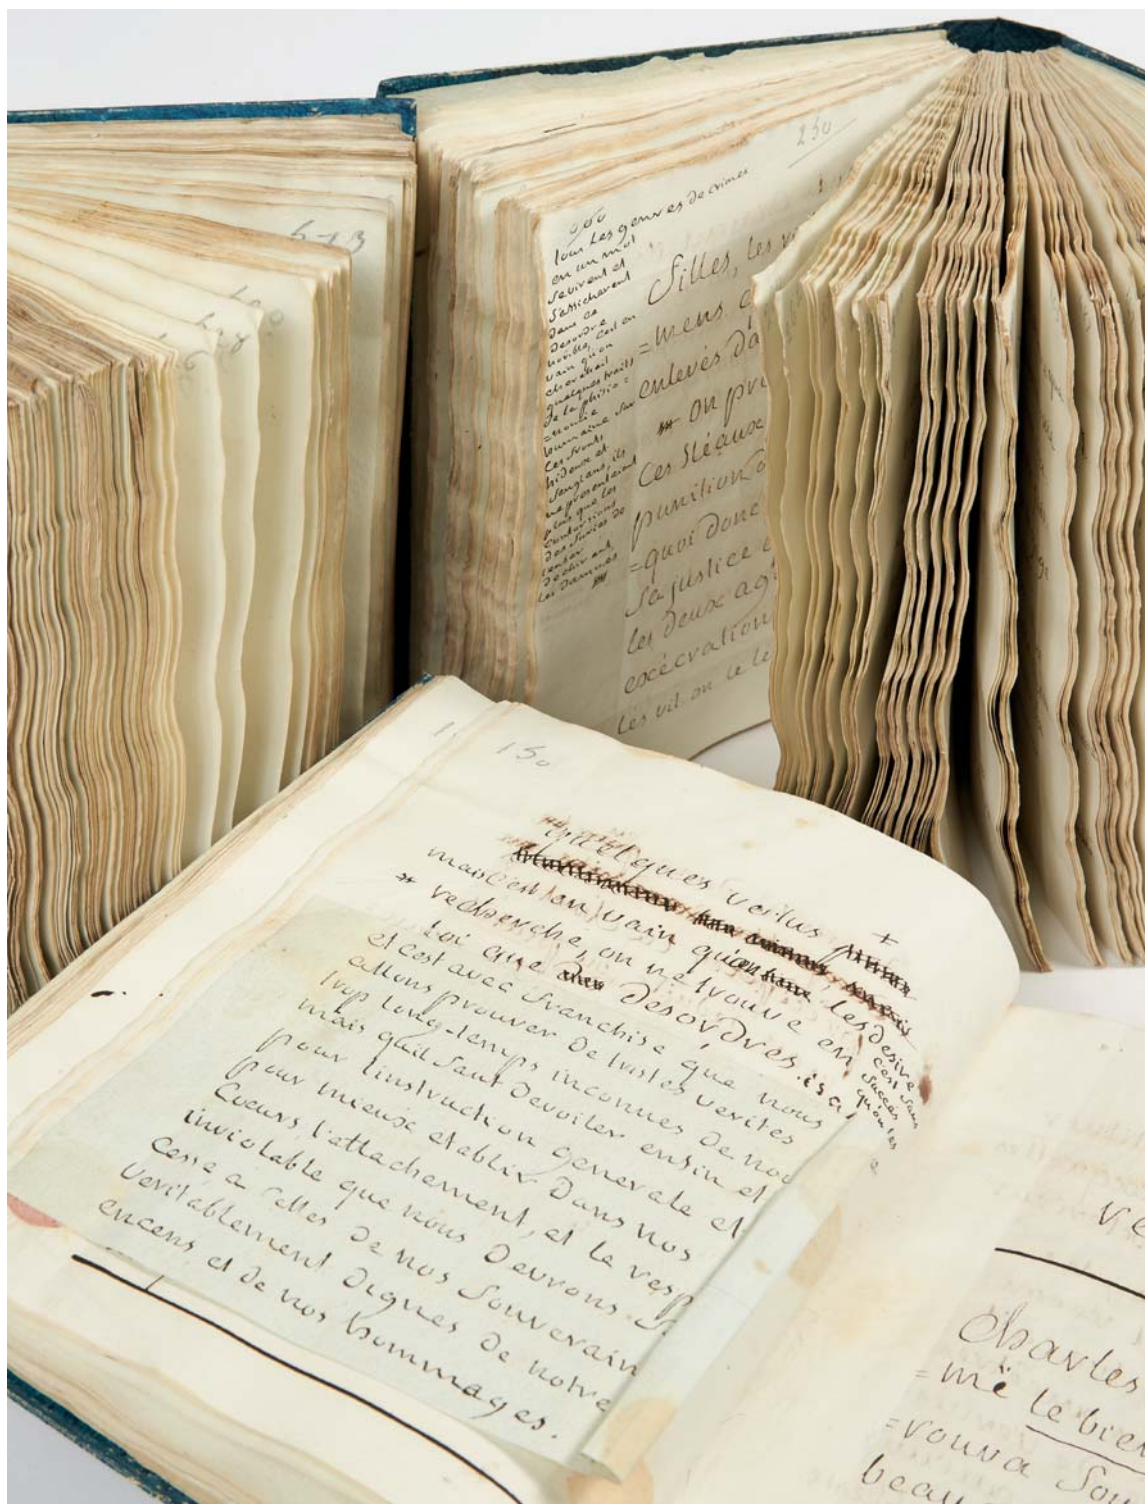 573
250
560
tous les genres de crimes
en un mot
se virent et
s'afficherent
dans ce
desordre
horrible, c'est en
vain qu'on
cherchait
quelques traits
de la phisio=
=nomie
humaine sur
ces fronts
hideux et
sanglans, ils
ne presentaient
plus que les
contorsions
des furies de
l'enfer
dechirant
les damnés
filles, les
=mens
enlevés da
on pri
ces fléaux
punition
=quoi donc
sa justice
les deux ag
exécration
les vit on le le
150
quelques vertus
mais c'est en vain qu'on les desire
recherche, on ne trouve en
c'est sans
succès
qu'on les
toi que desordres.
et c'est avec franchise que nous
allons prouver de tristes verites
trop long-temps inconnues de nou
mais qu'il faut devoiler enfin et
pour l'instruction generale et
pour mieux etablir dans nos
coeurs l'attachement, et le resp
inviolable que nous devrons s
cesse a celles de nos souverain
veritablement dignes de notre
encens et de nos hommages.
Charles
=më le bien
=rouva sou
beau